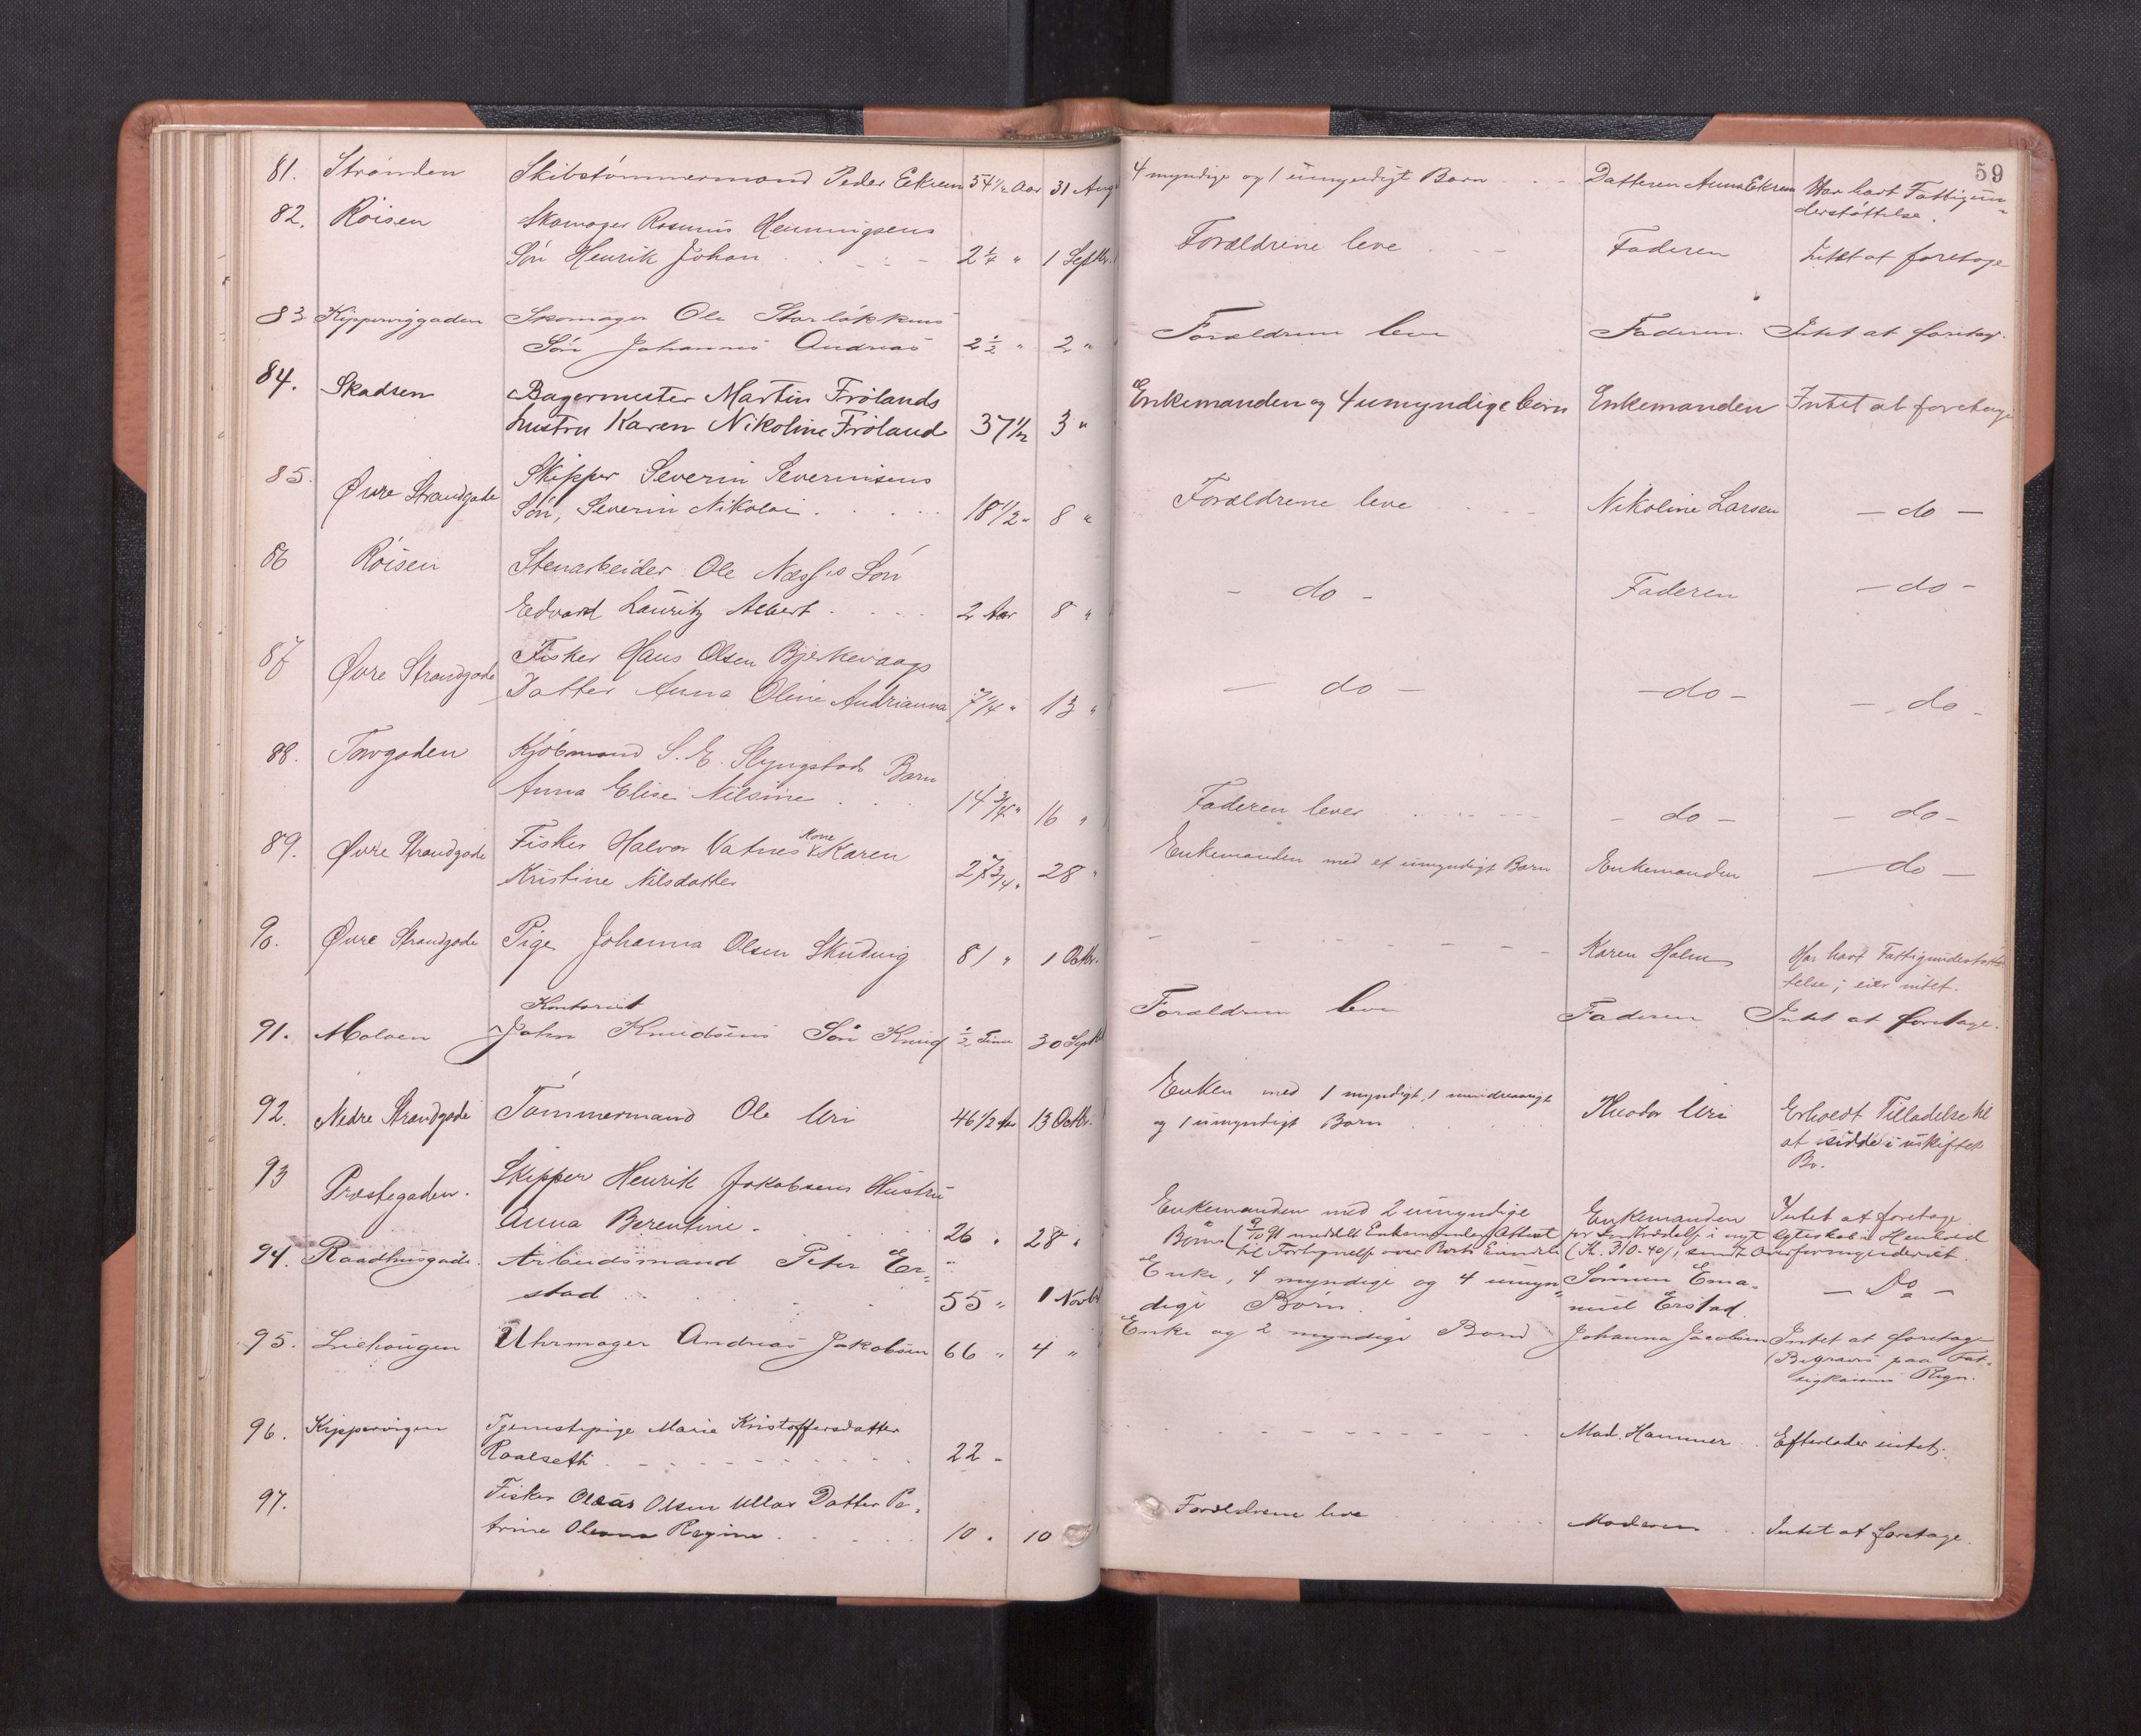 59
81. Stranden Skibstømmermand Peder Ekrem 54 1/2 Aar 31 Aug 4 myndige og 1 umyndigt Barn - - Datteren Anna Ekrem Har havt Fattigun-
derstøttelse.
82. Røisen Skomager Rasmus Henningsens
Søn Henrik Johan 2 1/4 " 1 Septbr. Forældrene leve - - Faderen Intet at foretage
83 Kipperviggaden Skomager Ole Storløkkens
Søn Johannes Andreas 2 1/2 " 2 " Forældrene leve Faderen. Intet at foretag.
84. Skadsen Bagermester Martin Frølands
hustru Karen Nikoline Frøland 37 1/2 3 " Enkemanden og 4 umyndige børn Enkemanden Intet at foretage
85. Øvre Strandgade Skipper Severin Severinsens
Søn, Severin Nikolai 18 1/2 " 8 " Forældrene leve Nikoline Larsen - do -
86 Røisen Stenarbeider Ole Næss's Søn
Edvard Lauritz Albert 2 Aar 8 " - do - Faderen - do -
87 Øvre Strandgade Fisker Hans Olsen Bjerkevaags
Datter Anna Oline Andrianna 7 1/4 " 13 " - do - - do - - do -
88. Torvgaden Kjøbmand S. E. Slyngstads Barn
Anna Elise Nilsine 14 3/4 " 16 " Faderen lever - do - - do -
89. Øvre Strandgade Fisker Halvor Vatnes Kone Karen
Kristine Nilsdatter 27 3/4 " 28 " Enkemanden med et umyndigt Barn Enkemanden - do -
90. Øvre Strandgade Pige Johanna Olsen Skudvig 81 " 1 Octbr. - - - - Karen Holm Har havt Fattigunderstøt-
telse; eier intet.
Kontorist
91. Moloen John Knudsens Søn Knud 1/2 Time 30 Septbr Forældrene leve Faderen Intet at foretage.
92. Nedre Strandgade Tømmermand Ole Uri 46 1/2 Aar 13 Octbr. Enken med 1 myndigt, 1 mindreaarigt
og 1 umyndigt Barn Theodor Uri Erholdt Tilladelse til
at sidde i uskiftet
Bo.
93 Præstegaden. Skipper Henrik Jakobsens Hustru
Anna Berentine. 26 " 28 " Enkemanden med 2 umyndige Enkemanden Intet at foretage
Børn
94. Raadhusgade. Arbeidsmand Peter Er-
stad 55 " 1 Novbr Enke, 4 myndige og 4 umyn- Sønnen Ema-
dige Børn. nuel Erstad. - Do -
95. Liehaugen Uhrmager Andreas Jakobsen 66 " 4 " Enke og 2 myndige Børn Johanna Jacobsen Intet at foretage
(Begraves paa Fat-
tigkassens Regn.
96. Kippervigen Tjenestepige Marie Kristoffersdatter
Roalseth 22 - - - - - Mad. Hammer Efterlader intet.
97. Fisker Olaus Olsen Ullas Datter Pe-
trine Oleana Regine 10 " 10 Forældrene leve Moderen Intet at foretage.